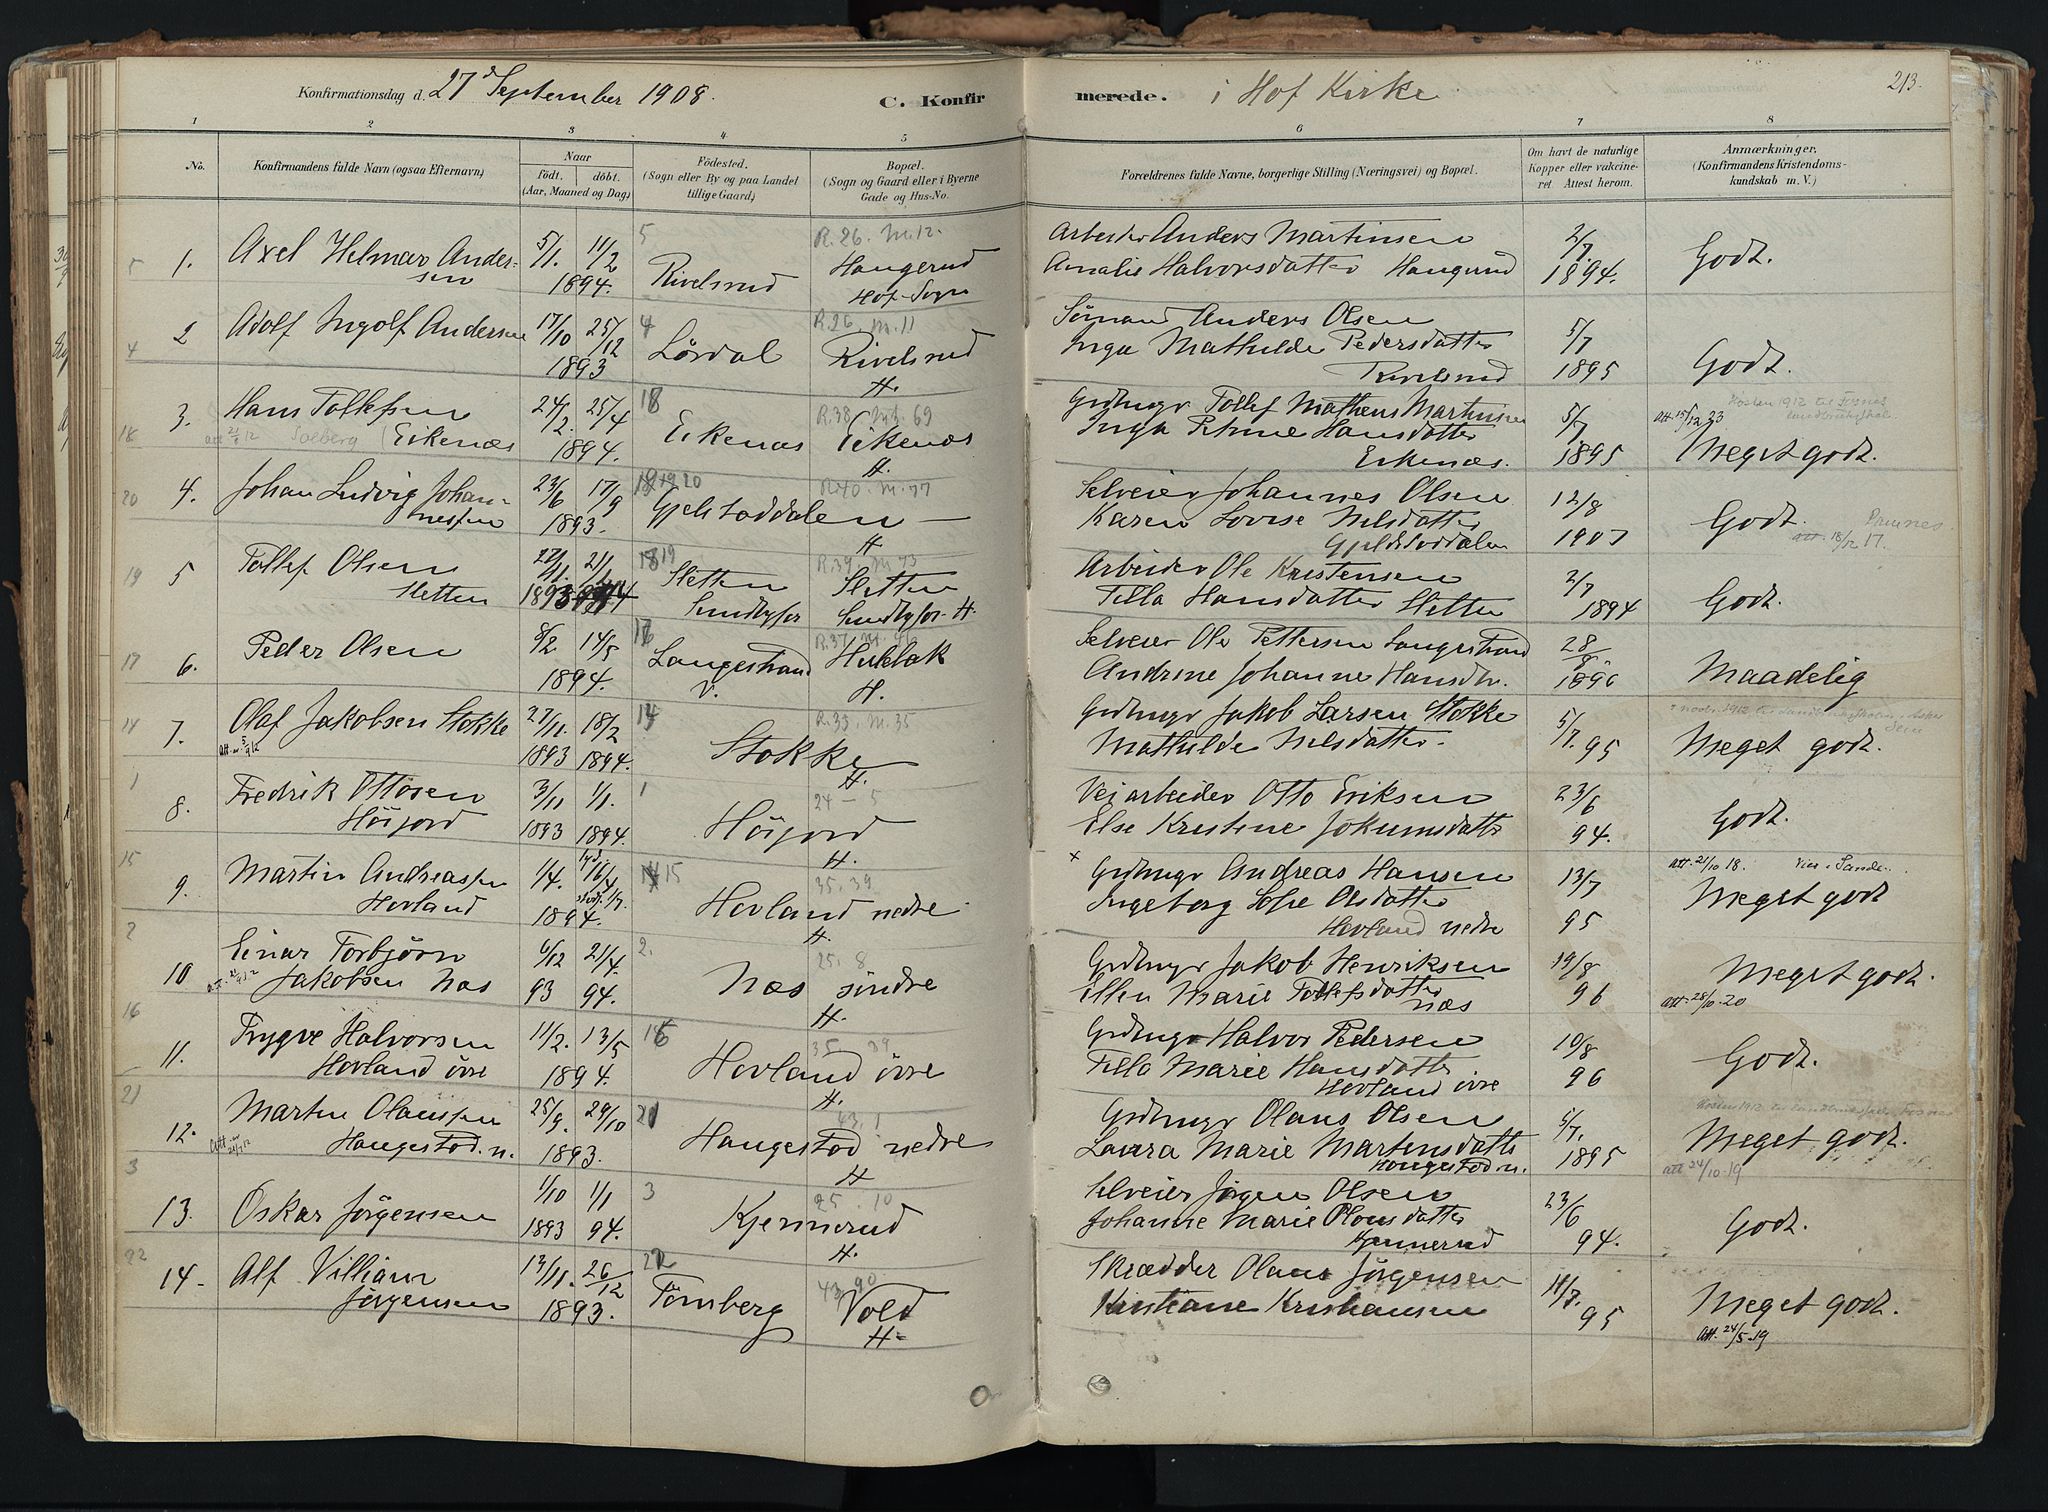 Konfirmationsdag d. 27 September 1908. C. Konfirmerede. i Hof Kirke 213.
1 2 3 4 5 6 7 8
No. Konfirmandens fulde Navn (ogsaa Efternavn) Naar Födt. döbt. (Aar, Maaned og Dag) Födested. (Sogn eller By og paa Landet tillige Gaard) Bopæl. (Sogn og Gaard eller i Byerne Gade og Hus-No. Forældrenes fulde Navne, borgerlige Stilling (Næringsvei) og Bopæl. Om havt de naturlige Kopper eller vakcineret Attest herom. Anmærkninger. (Konfirmandens Kristendomskundskab m. V.)
5 R.26. M.12.
5 1. Axel Helmar Ander- 5/1. 11/2 Haugerud Arbeider Anders Martinsen 2/7. Godt.
sen 1894. Rivelsrud Hof Sogn Amalie Halvorsdatter Haugerud 1894.
4 R.26 M.11
2 Adolf Ingolf Andersen 17/10 25/12 Lørdal Rivelsrud Sømand Anders Olsen 5/7
4 1893 H. Inga Mathilde Pedersdatter 1895 Godt.
Rivelsrud
18 R.38 M.69
3. Hans Tollefsen 24/2. 25/4 Eikenæs Eikenæs Gdbrugr Tollef Mathæus Martinsen 5/7 Att. 15/12 33
18 Solberg Eikenæs 1894. H. Inga Petrine Hansdatter 1895 Meget godt.
Eikenæs.
20 R.40. M.77
20 4. Johan Ludvig Johan- 23/6 17/9 Gjelstaddalen — Selveier Johannes Olsen 12/8 Godt.
nessen 1893. H Karen Lovise Nilsdatter 1907 att. 18/12 17.
19 R.39 M 73
19 5 Tollef Olsen 21/1 Sletten Sletten Arbeider Ole Kristensen 2/7 Godt.
Sletten H Tilla Hansdatter Sletten 1894
17 R.37
17 6. Peder Olsen 8/2. 14/5 Langestrand Huklak Selveier Ole Pettersen Langestrand 28/8.
1894. V. H. Andrine Johanne Hansdtr. 1896 Maadelig
14 R.33. M.35
14 7. Olaf Jakobsen Stokke 27/11. 18/2 Stokke Gdbrugr Jakob Larsen Stokke 5/7. 95 Meget godt.
1893 1894. H. Mathilde Nilsdatter.
1 24 - 5
1 8. Fredrik Ottosen 3/11 1/1. Höijord Veiarbeider Otto Eriksen 23/6 Godt.
Höijord 1893 1894. H. Else Kristine Jokumsdatter 94.
15 35. 39
15 9. Martin Andreassen 1/4. Hovland nedre × Gdbrugr Andreas Hansen 13/7 Att. 21/10 18. Viet i Sande.
Hovland 1894. H. Ingeborg Sofie Olsdatter 95 Meget godt
Hovland nedre
2. 25. 8
2 10 Einar Torbjørn 6/12 21/4. Næs söndre Gdbrugr Jakob Henriksen 19/8 Meget godt.
Jakobsen Næs 93 94. H. Ellen Marie Tollefsdatter Næs 96 Att. 28/10.20
16 35. 39
16 11. Trygve Halvorsen 11/2. 13/5 Hovland övre Gdbrugr Halvor Pedersen 10/8 Godt.
Hovland övre 1894. H. Tilla Marie Hansdatter 96
Hovland övre
21 43. 1
21 12. Martin Olaussen 25/9. 29/10 Haugestad nedre Gdbrugr Olaus Olsen 6/7. Meget godt.
Haugestad. n. 1893. H Laura Marie Martinsdatter 1895
Haugestad n. att 24/10.19
3 25. 10
3 13. Oskar Jørgensen 1/10 1/1 Kjennerud Selveier Jørgen Olsen 23/6 Godt.
1893 94. H. Johanne Marie Olausdatter 94.
Kjennerud
22 43. 90
22 14. Alf Villiam 13/11. 26/12 Tömberg Vold Skrædder Olaus Jørgensen 11/7. Meget godt.
Jørgensen 1893. H. Kristiane Kristiansen 95
Att. 24/5.19